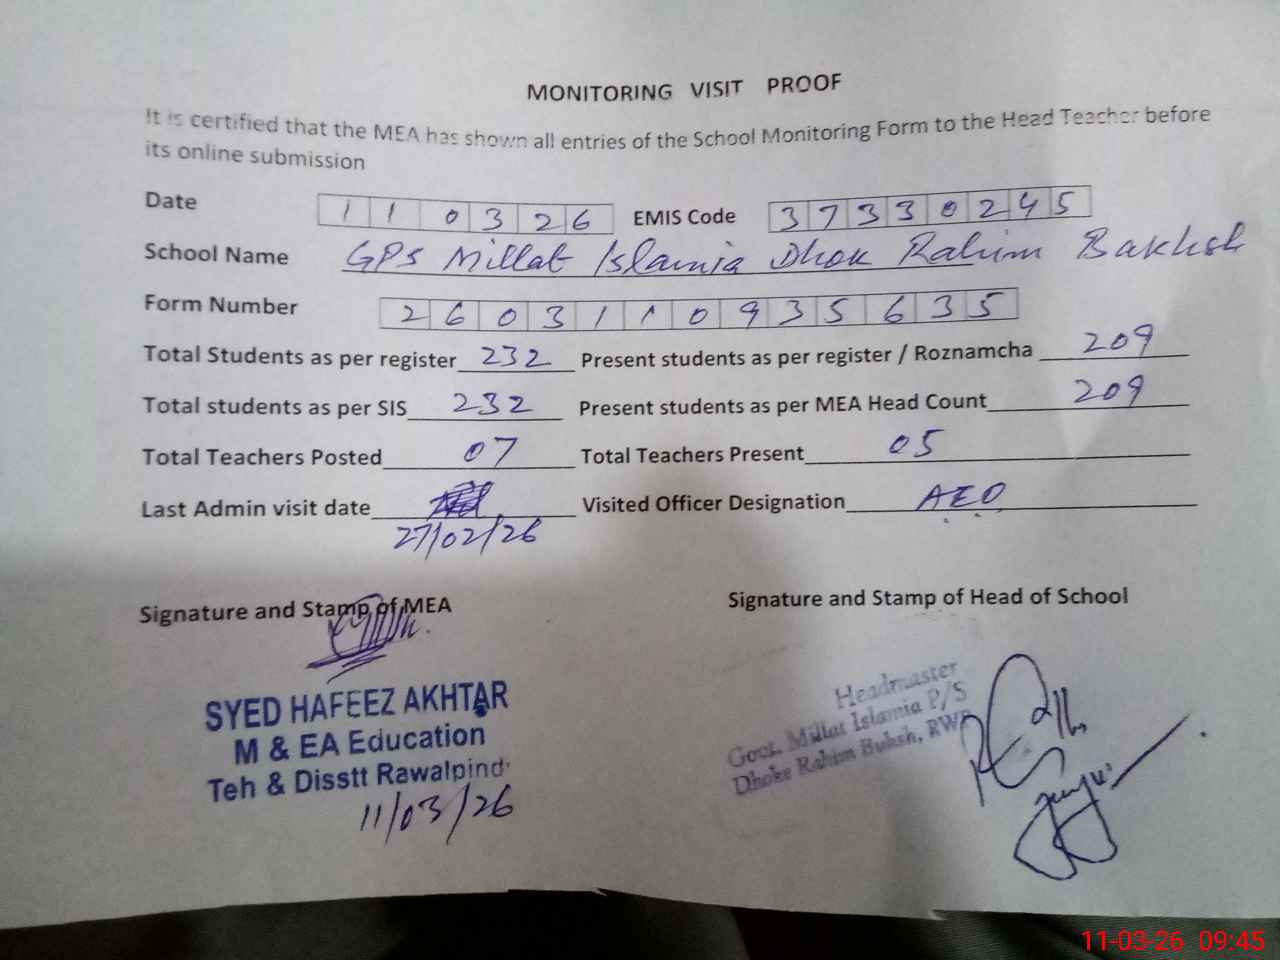 MONITORING VISIT PROOF
It is certified that the MEA has shown all entries of the School Monitoring Form to the Head Teacher before
its online submission
Date 110326 EMIS Code 37330245
School Name GPS Millat Islamia Dhok Rahim Bakhsh
Form Number 2603110935635
Total Students as per register 232 Present students as per register / Roznamcha 209
Total students as per SIS 232 Present students as per MEA Head Count 209
Total Teachers Posted 07 Total Teachers Present 05
Last Admin visit date Visited Officer Designation AEO
27/02/26
Signature and Stamp of MEA Signature and Stamp of Head of School
SYED HAFEEZ AKHTAR
M & EA Education
Teh & Disstt Rawalpindi
11/03/26
Headmaster
Govt. Millat Islamia P/S
Dhoke Rahim Buksh, RWP
11-03-26 09:45